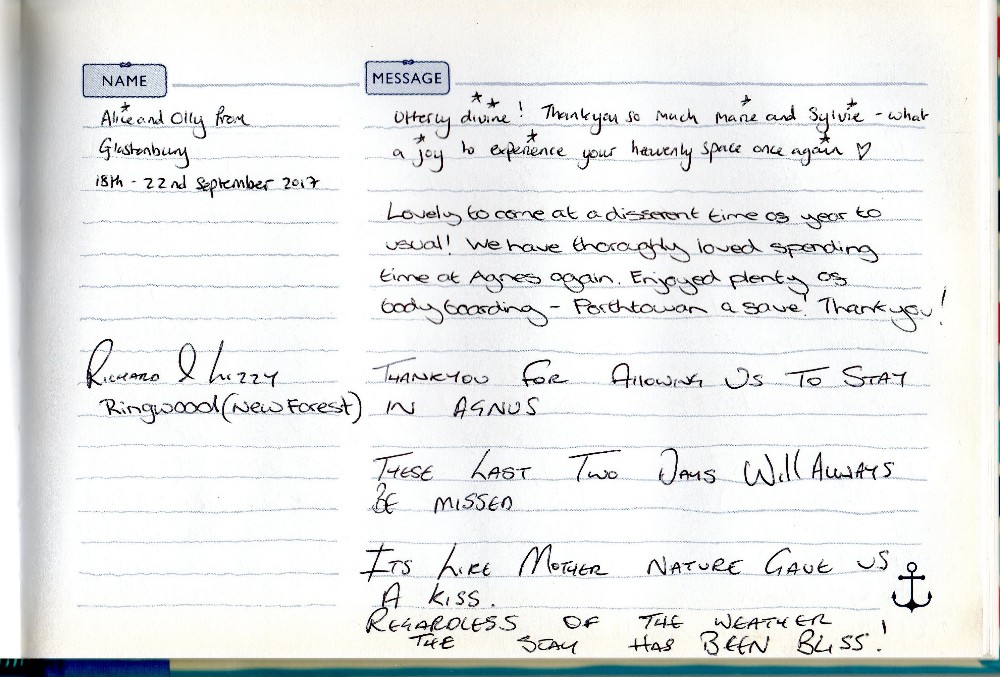 NAME
MESSAGE
Alice and Olly from
Glastonbury
18th - 22nd September 2017
Utterly divine! Thankyou so much Marie and Sylvie - what
a joy to experience your heavenly space once again ♡
Lovely to come at a different time of year to
usual! We have thoroughly loved spending
time at Agnes again. Enjoyed plenty of
body boarding - Porthtowan a fave! Thankyou!
Richard & Lizzy
Ringwood (New Forest)
THANKYOU FOR Allowing Us To STAY
IN AGNUS
THESE LAST Two DAYS Will ALWAYS
BE MISSED
ITS LIKE MOTHER NATURE GAVE US
A KISS.
REGARDLESS OF THE WEATHER
THE STAY HAS BEEN BLISS!